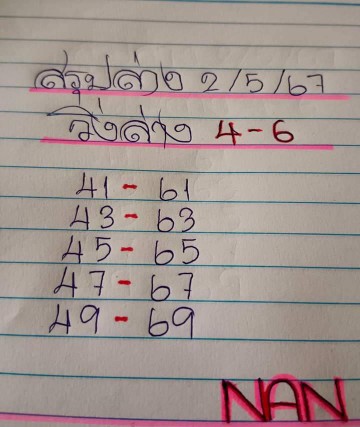 สรุปล่าง 2/5/67
วิ่งล่าง 4-6
41 - 61
43 - 63
45 - 65
47 - 67
49 - 69
NAN